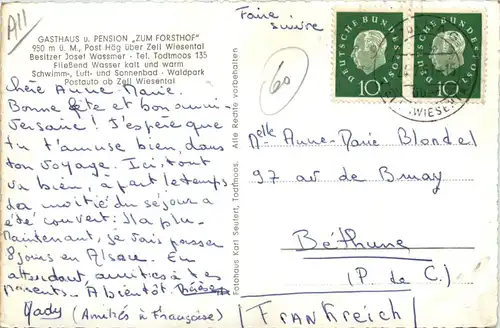 All
GASTHAUS u. PENSION „ZUM FORSTHOF"
950 m ü. M., Post Häg über Zell Wiesental
Besitzer Josef Wassmer - Tel. Todtmoos 135
Fließend Wasser kalt und warm
Schwimm-, Luft- und Sonnenbad - Waldpark
Postauto ab Zell Wiesental
Chère Anne-Marie.
Bonne fête et bon anni-
versaire! J'espère que
tu t'amuse bien, dans
ton voyage. Ici, tout
va bien, à part le temps
La moitié du séjour a
été couvert: Il a plu.
Maintenant, je vais passer
8 jours en Alsace. En
attendant amitiés à tes
parents. A bientôt.
Mady (Amitiés à Françoise)
Alle Rechte vorbehalten
Fotohaus Karl Seufert, Todtmoos.
Faire
suivre
60
DEUTSCHE BUNDESPOST
10
DEUTSCHE BUNDESPOST
10
(WIESENT
Melle Anne-Marie Blondel
97 av de Bruay
Béthune
(P. de C.)
(Frankreich)